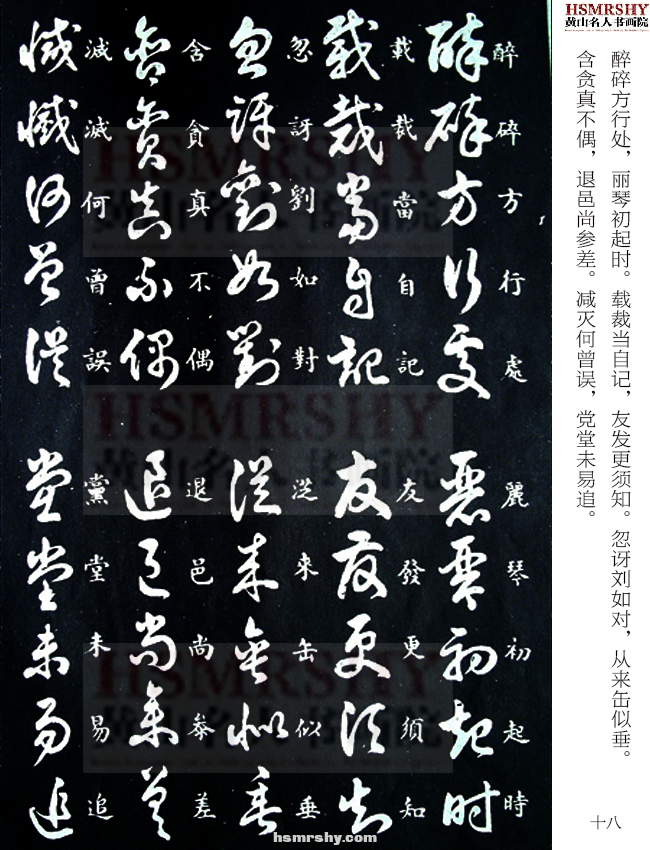 HSMRSHY
黄山名人书画院
醉碎方行处，丽琴初起时。载裁当自记，友发更须知。忽讶刘如对，从来缶似垂。
含贪真不偶，退邑尚参差。减灭何曾误，党堂未易追。
十八
醉碎方行處
麗琴初起時
載裁當自記
友發更須知
忽訝劉如對
從來缶似垂
含貪真不偶
退邑尚叅差
減滅何曾誤
黨堂未易追
HSMRSHY
黄山名人书画院
HSMRSHY
黄山名人书画院
HSMRSHY
黄山名人书画院
hsmrshy.com